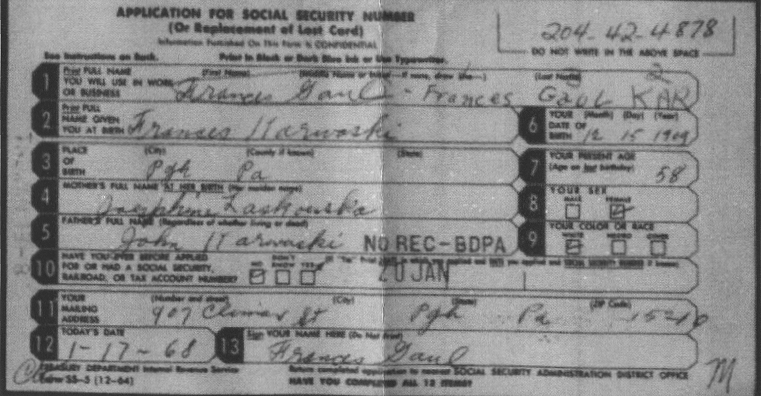 APPLICATION FOR SOCIAL SECURITY NUMBER
(Or Replacement of Lost Card)
Information Furnished On This Form Is CONFIDENTIAL
204-42-4878
DO NOT WRITE IN THE ABOVE SPACE
See Instructions on Back. Print in Black or Dark Blue Ink or Use Typewriter.
1 Print FULL NAME YOU WILL USE IN WORK OR BUSINESS (First Name) (Middle Name or Initial—if none, draw line—) (Last Name)
Frances Gaul - Frances Gaul KAR
2 Print FULL NAME GIVEN YOU AT BIRTH Frances Karwoski
6 YOUR DATE OF BIRTH (Month) (Day) (Year) 12 15 1909
3 PLACE OF BIRTH (City) (County if known) (State)
Pgh Pa
7 YOUR PRESENT AGE (Age on last birthday) 58
4 MOTHER'S FULL NAME AT HER BIRTH (Her maiden name)
Josephine Laskowska
8 YOUR SEX MALE FEMALE
5 FATHER'S FULL NAME (Regardless of whether living or dead)
John Karwoski
NO REC-BDPA
9 YOUR COLOR OR RACE WHITE NEGRO OTHER
10 HAVE YOU EVER BEFORE APPLIED FOR OR HAD A SOCIAL SECURITY, RAILROAD, OR TAX ACCOUNT NUMBER? NO DON'T KNOW YES
20 JAN
11 YOUR MAILING ADDRESS (Number and street) (City) (State) (ZIP Code)
907 Climax St Pgh Pa
12 TODAY'S DATE 1-17-68
13 Sign YOUR NAME HERE (Do Not Print)
Frances Gaul
TREASURY DEPARTMENT Internal Revenue Service
Form SS-5 (12-64)
Return completed application to nearest SOCIAL SECURITY ADMINISTRATION DISTRICT OFFICE
HAVE YOU COMPLETED ALL 13 ITEMS?
M